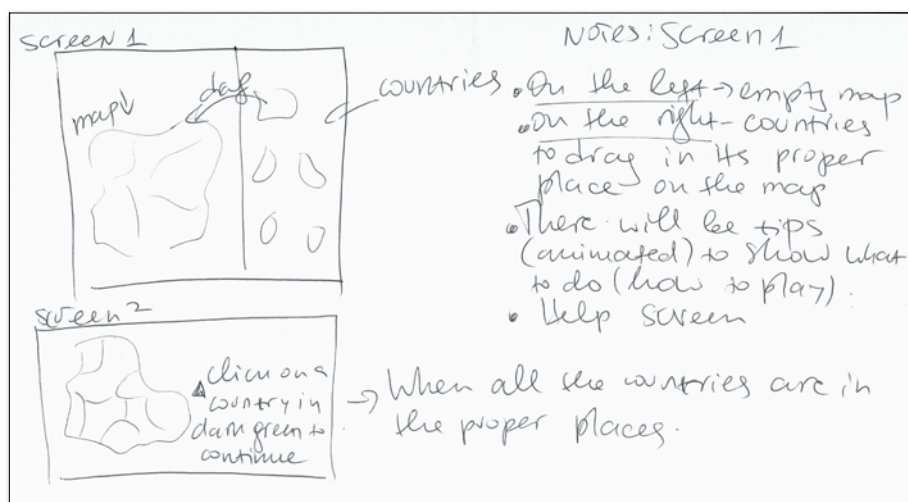 screen 1
map↓
drag
countries
Notes: Screen 1
• On the left → empty map
• on the right - countries
to drag in its proper
place on the map
• There will be tips
(animated) to show what
to do (how to play).
• Help screen
screen 2
click on a
country in
dark green to
continue
→ When all the countries are in
the proper places.